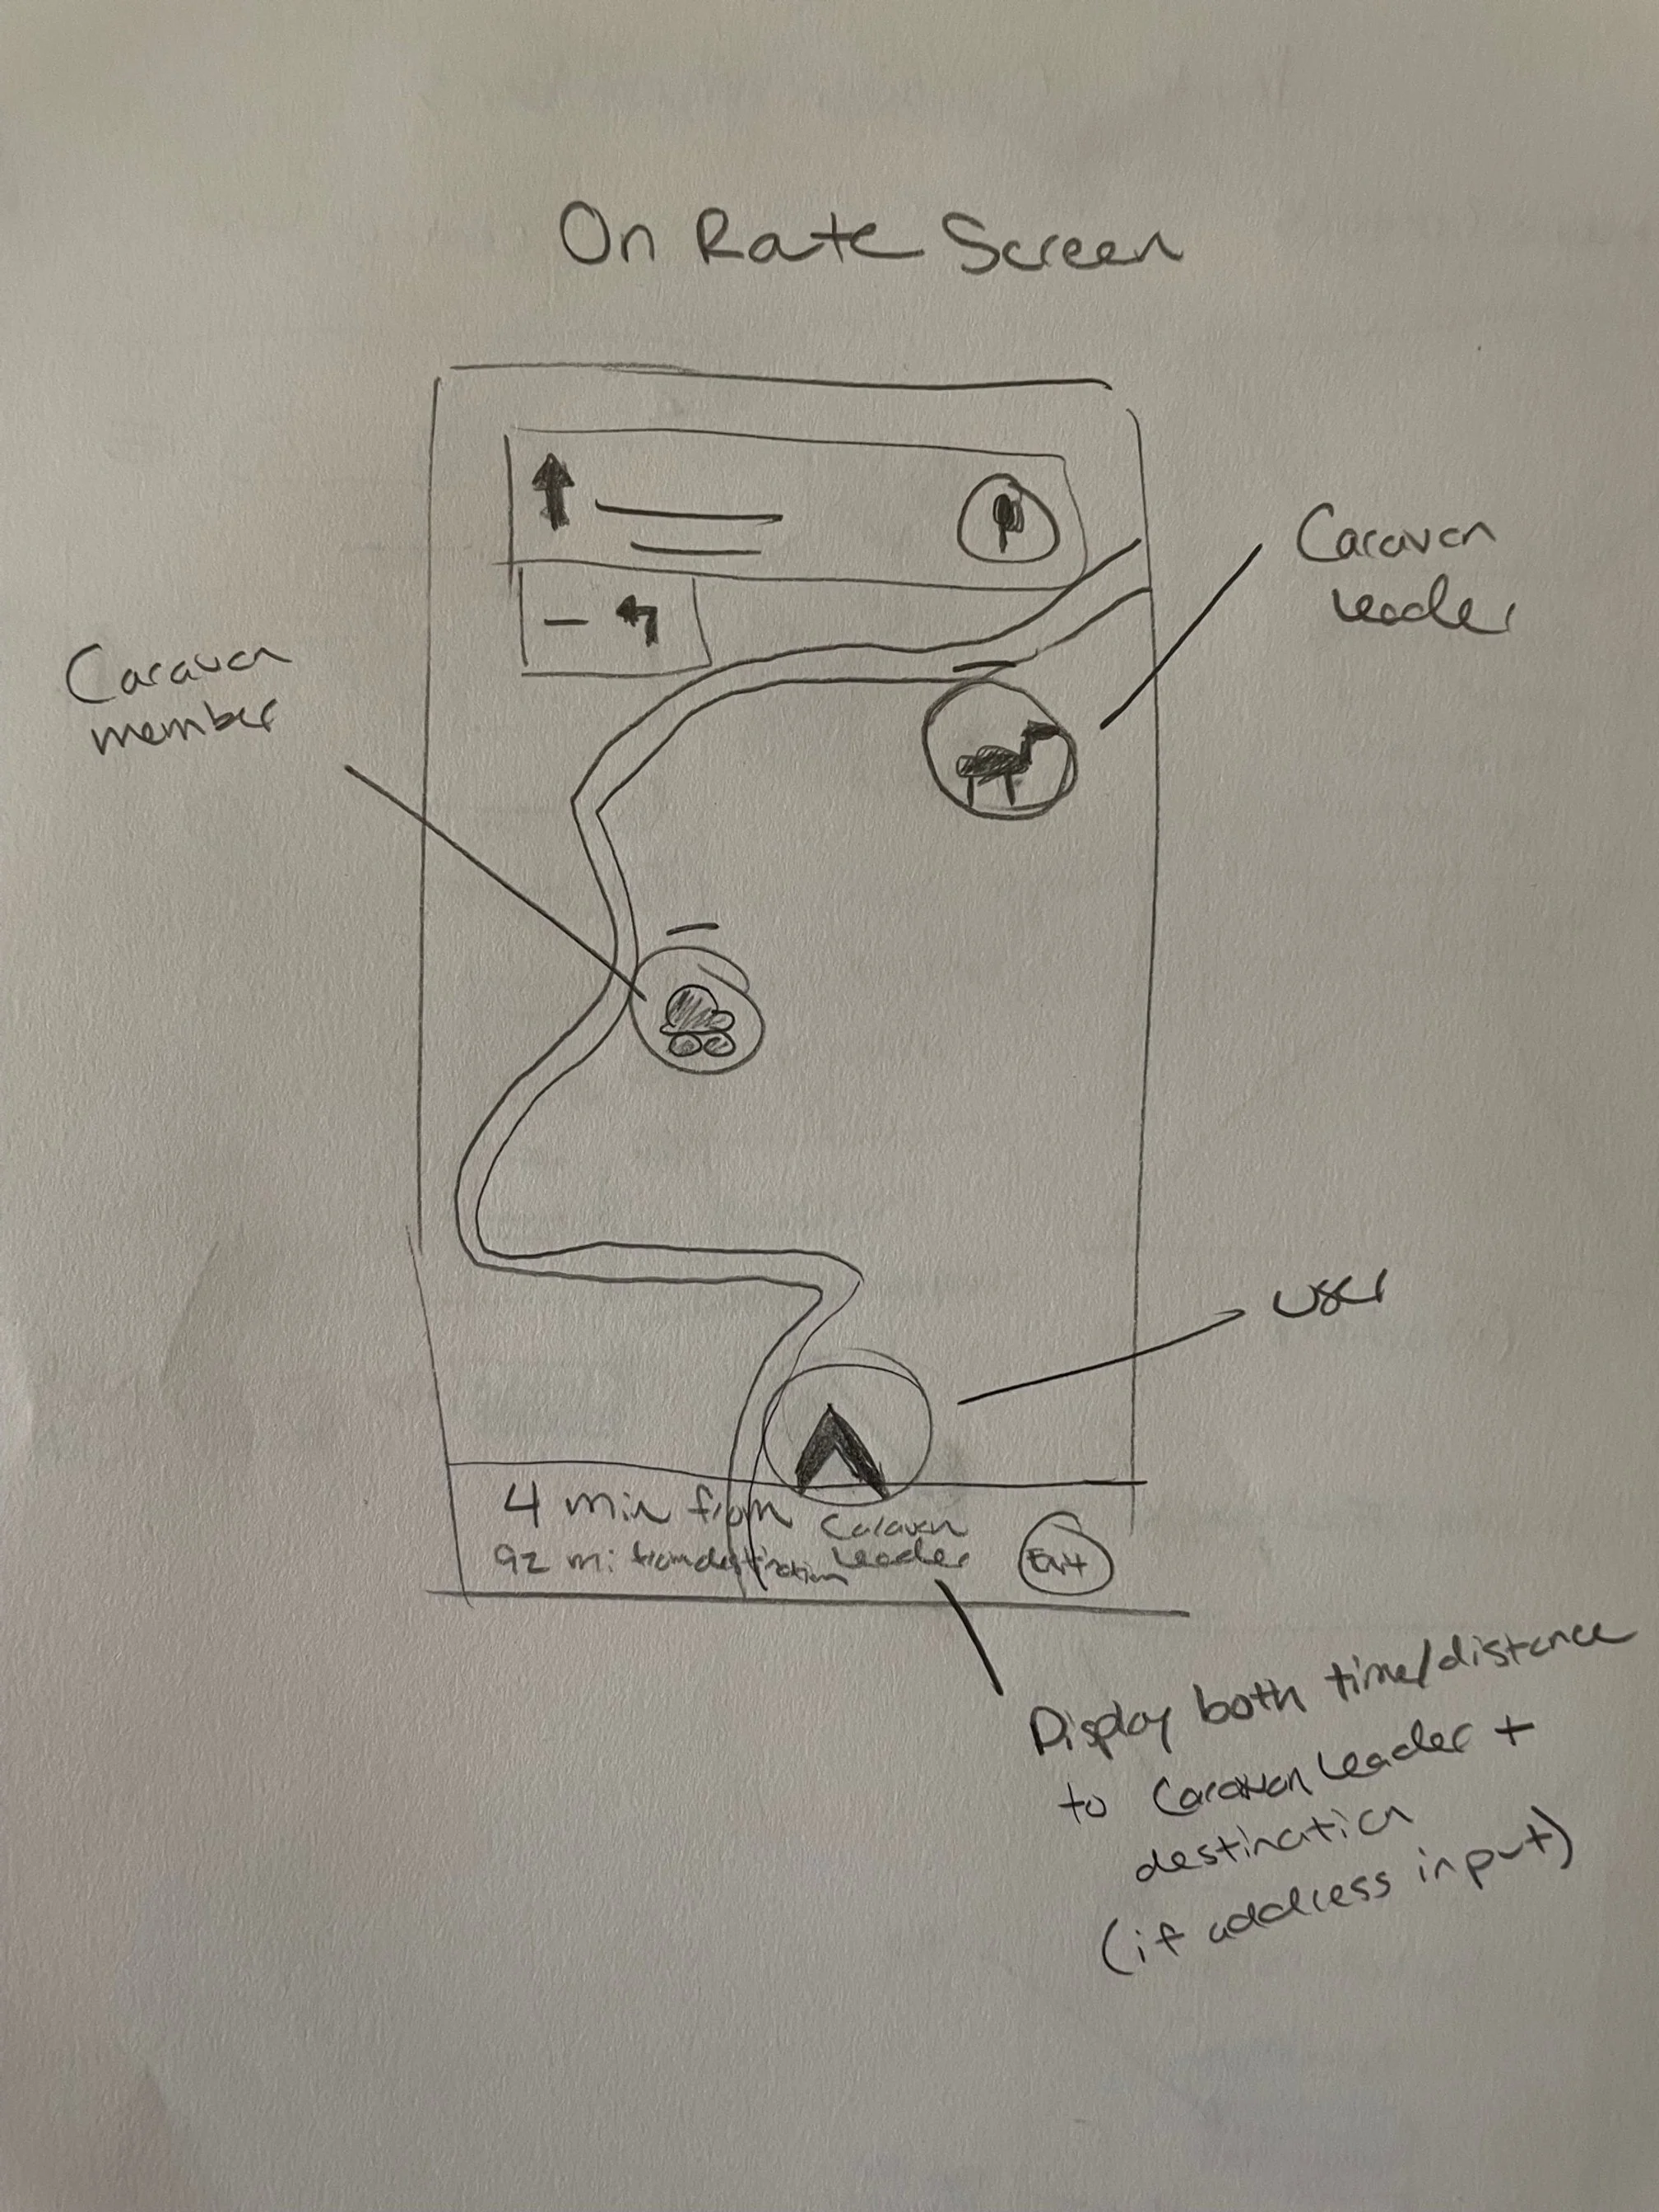 On Rate Screen
Caravan
leader
Caravan
member
user
4 min from Caravan
Leader
92 mi from destination
Exit
Display both time/distance
to Caravan leader +
destination
(if address input)